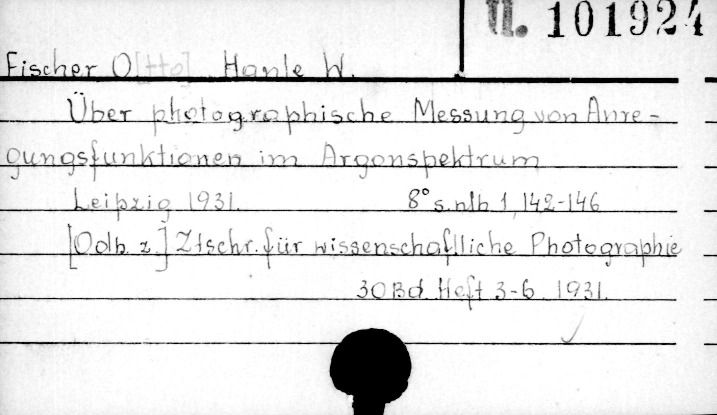 II. 101924
Fischer O[tto] Hanle W.
Über photographische Messung von Anre-
gungsfunktionen im Argonspektrum
Leipzig 1931. 8° s. nlb. 1, 142-146
[Odb. z.] Ztschr. für wissenschaftliche Photographie
30 Bd. Heft 3-6. 1931.